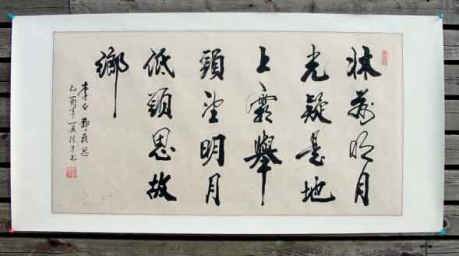 牀前明月
光疑是地
上霜舉
頭望明月
低頭思故
鄉
李白靜夜思